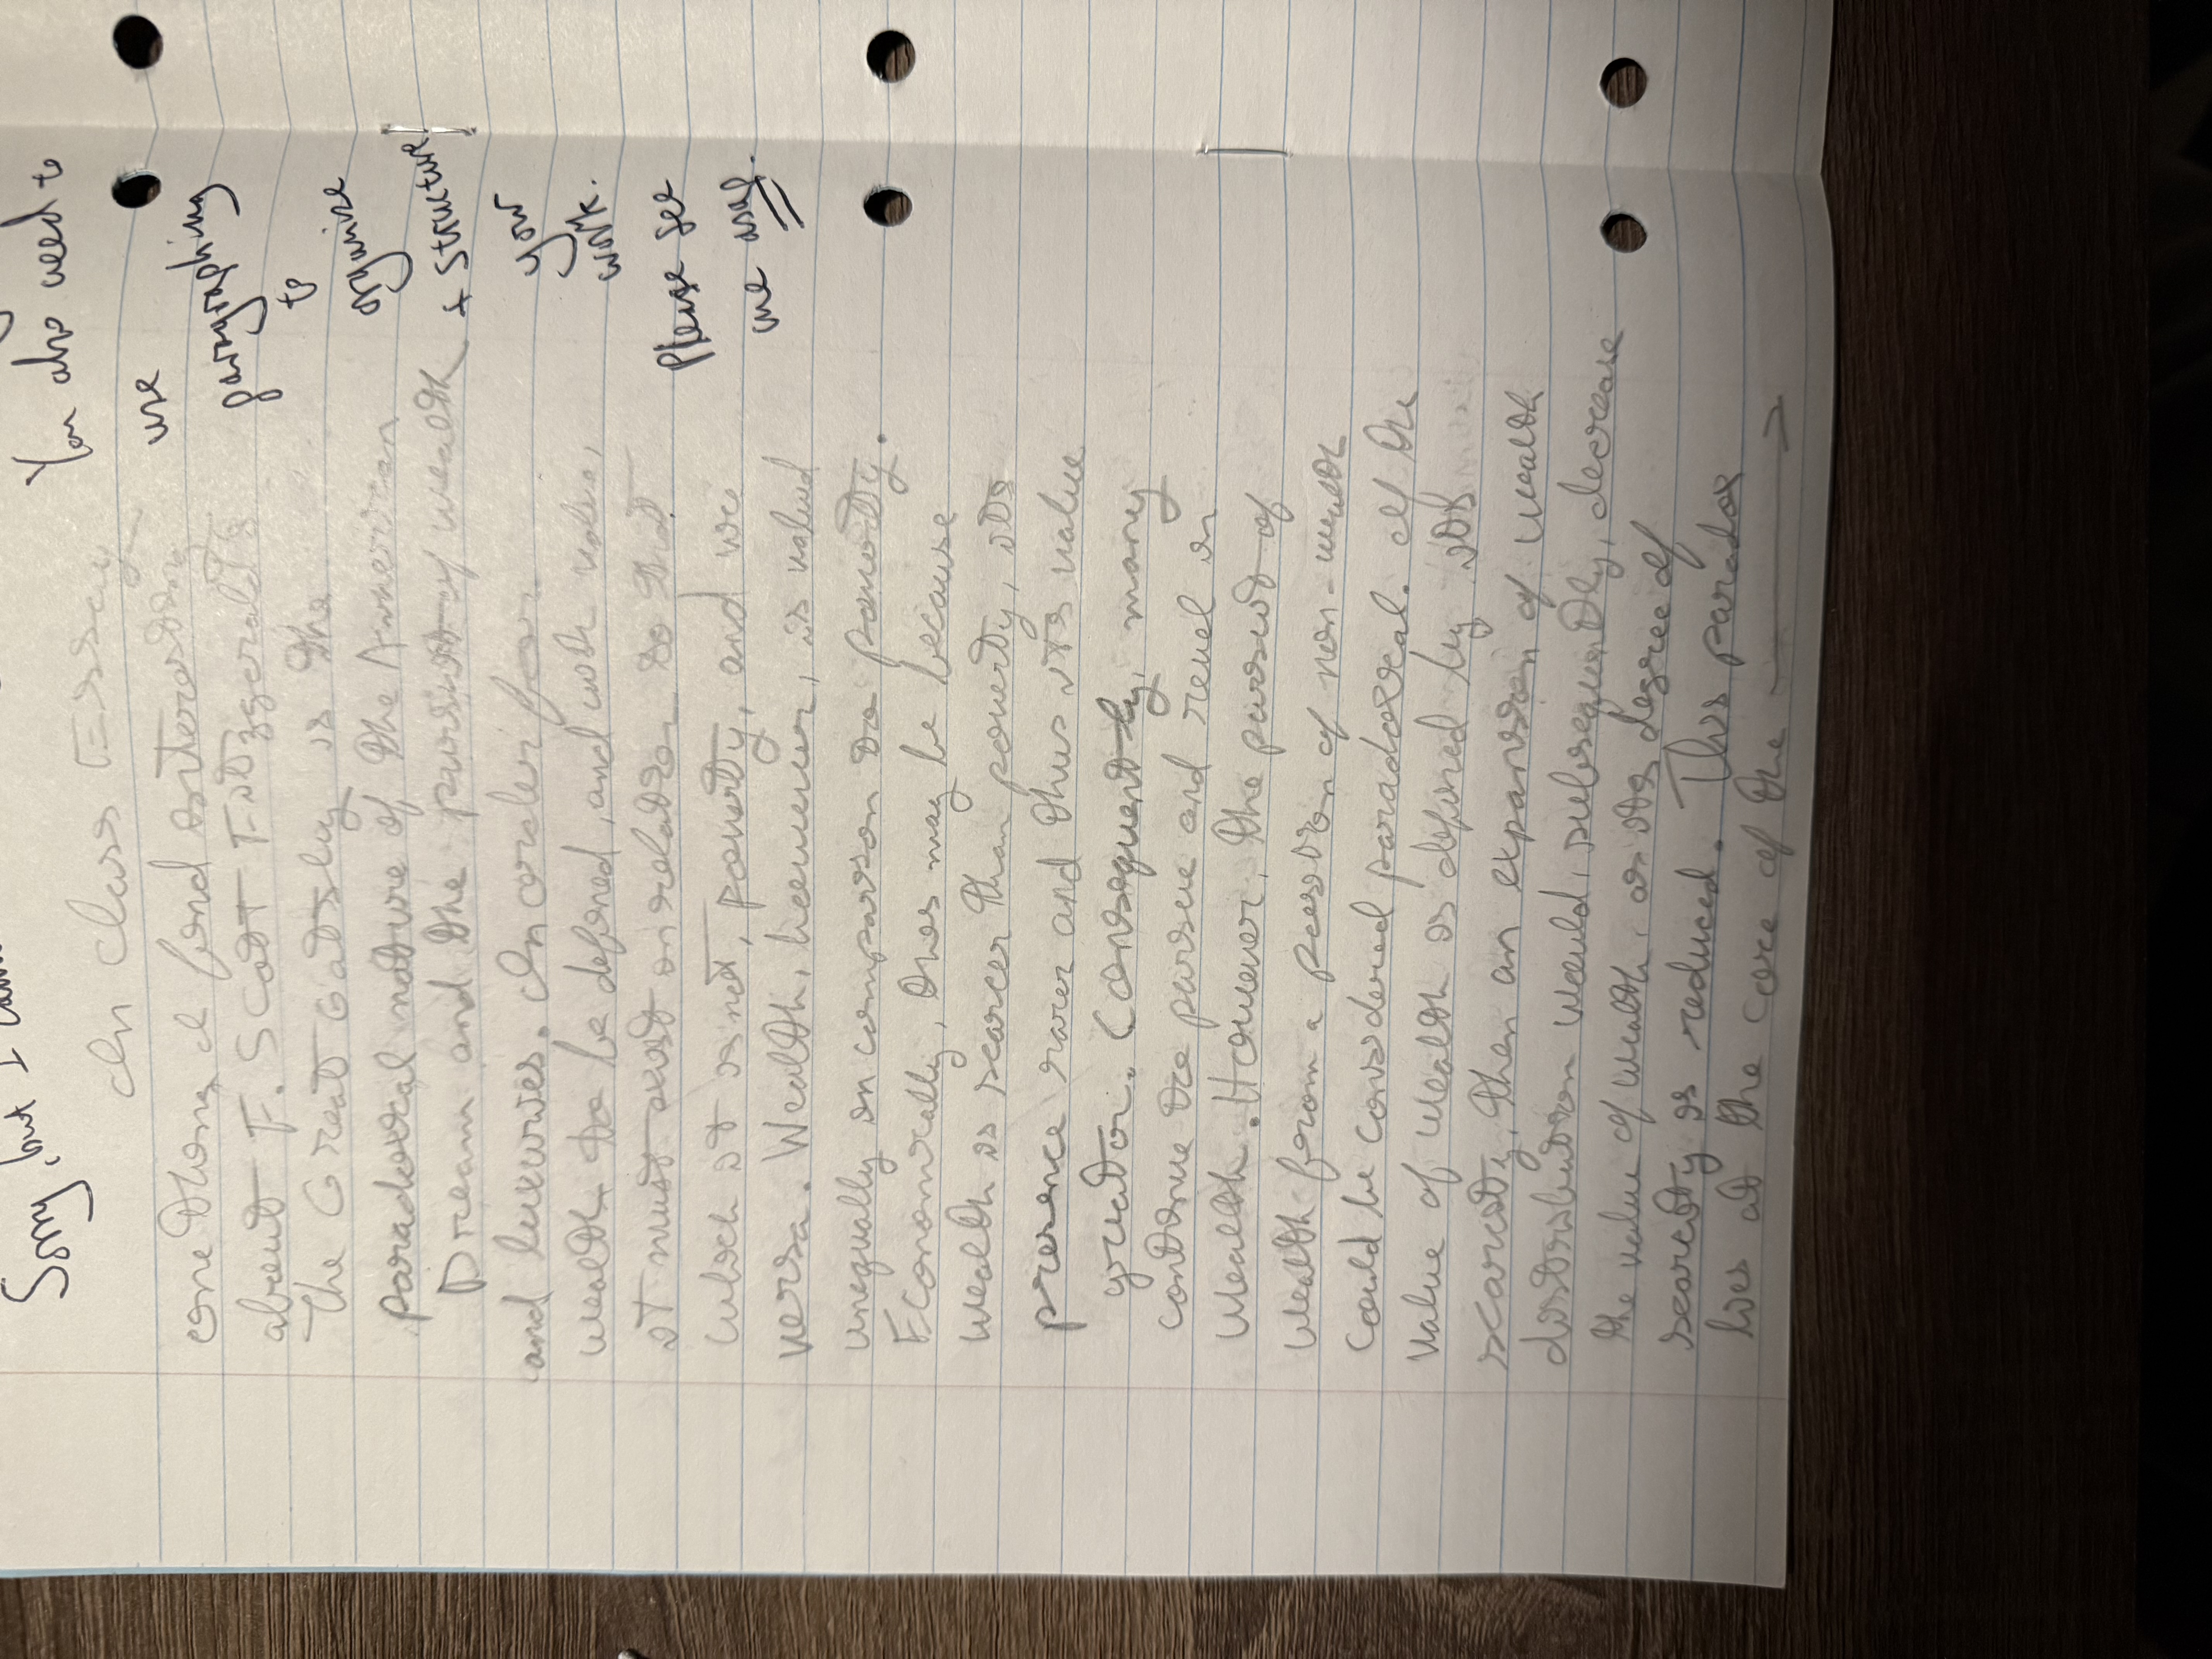 Sorry, but I
You also need to
use
paragraphing
to
organise
+ structure
your
work.
Please see
me asap.
In Class Essay
One thing I find interesting
about F. Scott Fitzgerald's
The Great Gatsby is the
paradoxical nature of the American
Dream and the pursuit of wealth
and luxuries. In order for
wealth to be defined, and with value,
it must exist in relation to that
which it is not, poverty, and vice
versa. Wealth, however, is valued
unequally in comparison to poverty.
Economically, this may be because
wealth is scarcer than poverty, its
presence rarer and thus its value
greater. Consequently, many
continue to pursue and revel in
wealth. However, the pursuit of
wealth from a possession of non-wealth
could be considered paradoxical. If the
value of wealth is defined by its
scarcity, then an expansion of wealth
distribution would, subsequently, decrease
the value of wealth, as its degree of
scarcity is reduced. This paradox
lies at the core of the →